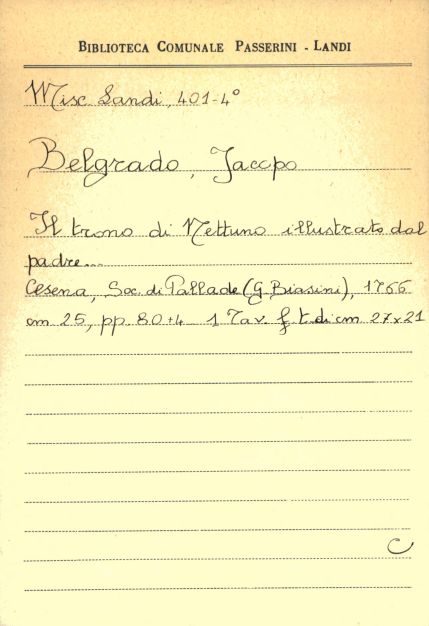 BIBLIOTECA COMUNALE PASSERINI - LANDI
Misc. Landi, 401-4°
Belgrado, Jacopo
Il trono di Nettuno illustrato dal
padre...
Cesena, Soc. di Pallade (G. Biasini), 1766
cm 25, pp. 80+4 1 Tav. f. t. di cm 27x21
C